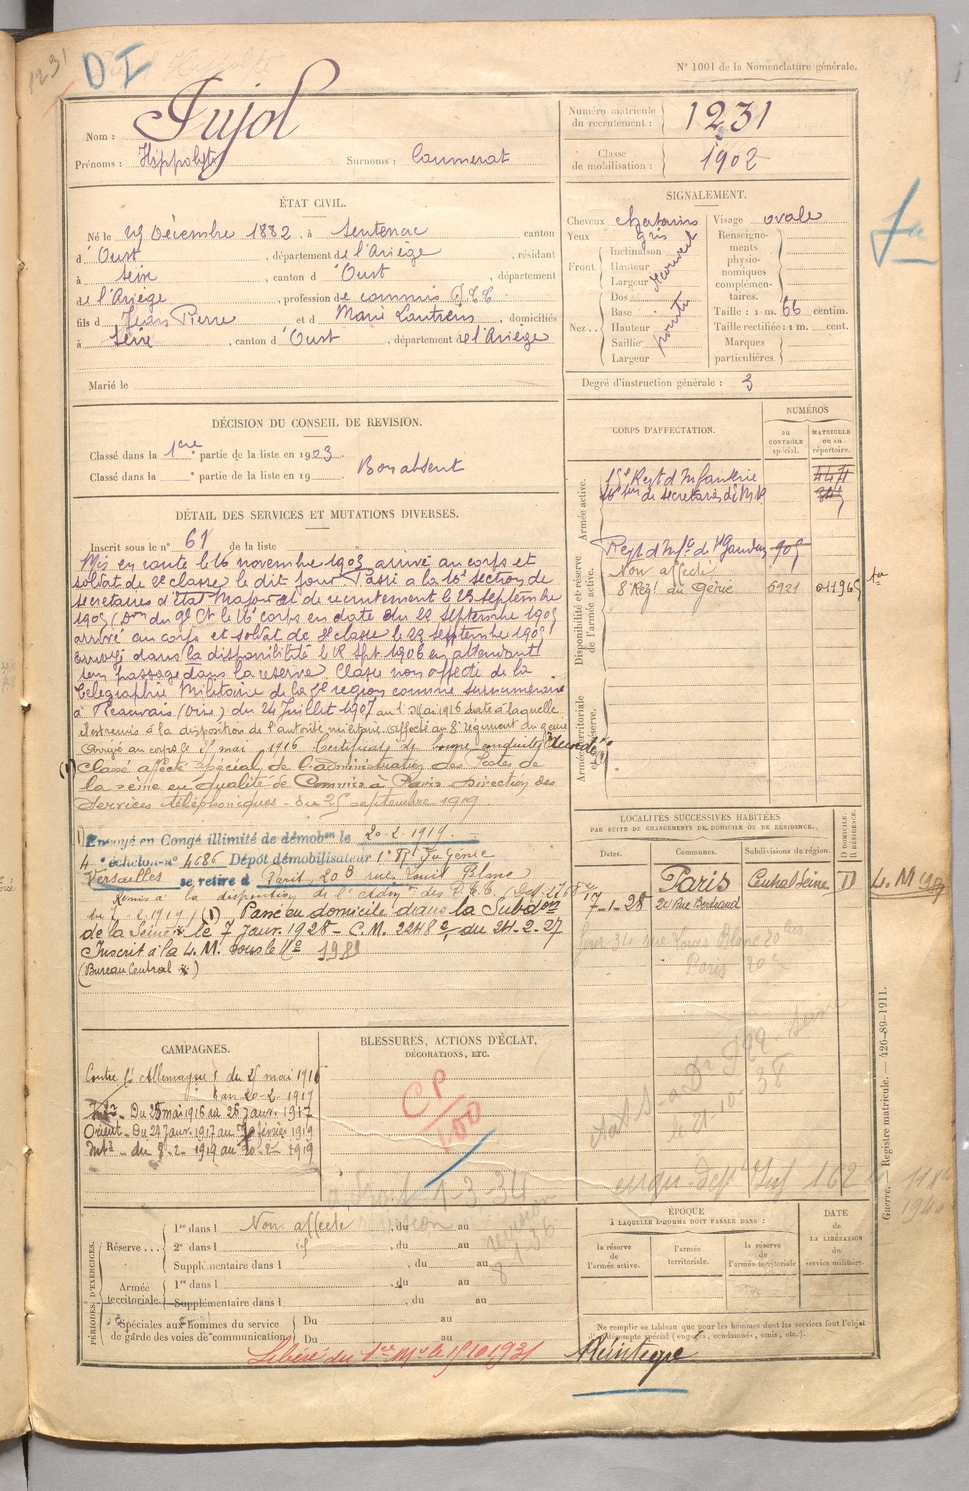 1231
DI
N° 1001 de la Nomenclature générale.
Nom : Pujol
Prénoms : Hippolyte Surnoms : Caumerat
Numéro matricule du recrutement : 1231
Classe de mobilisation : 1902
ÉTAT CIVIL.
Né le 29 Décembre 1882, à Sentenac canton
d'Oust, département de l'Ariège, résidant
à Seix, canton d'Oust, département
de l'Ariège, profession de commis P.T.T.
fils de Jean Pierre et de Marie Lautrens, domiciliés
à Seix, canton d'Oust, département de l'Ariège
Marié le
SIGNALEMENT.
Cheveux chatains
Yeux gris
Front. Inclinaison
Hauteur
Largeur
découvert
Nez.. Dos
Base
Hauteur
Saillie
Largeur
pointu
Visage ovale
Renseignements physionomiques complémentaires.
Taille : 1 m. 66 centim.
Taille rectifiée : 1 m. cent.
Marques particulières.
Degré d'instruction générale : 3
DÉCISION DU CONSEIL DE REVISION.
Classé dans la 1ère partie de la liste en 1903.
Classé dans la e partie de la liste en 19 .
Bon absent
DÉTAIL DES SERVICES ET MUTATIONS DIVERSES.
Inscrit sous le n° 61 de la liste
Mis en route le 16 novembre 1903 arrivé au corps et
soldat de 2e classe le dit jour Passé à la 16e section de
secrétaires d'État Major et de recrutement le 23 Septembre
1905 (Don du Gl Ct le 16e corps en date du 22 septembre 1905
arrivé au corps et soldat de 2e classe le 23 septembre 1905
envoyé dans la disponibilité le 18 Sept 1906 en attendant
son passage dans la réserve. Classé non affecté de la
télégraphie Militaire de la 2e région comme surnuméraire
à Beauvais (Oise) du 24 Juillet 1907 au 1 Mai 1916 date à laquelle
il est remis à la disposition de l'autorité militaire. Affecté au 8e régiment du génie
Arrivé au corps le 25 mai 1916 Certificat de bonne conduite accordé
(1) Classé affecté spécial de l'administration des Postes de
la 2ème en qualité de Commis à Paris Direction des
Services téléphoniques - du 25 septembre 1919
Envoyé en Congé illimité de démobon le 20-2-1919.
4e échelon n° 4686 Dépôt démobilisateur 1er Rt du Génie
Versailles se retire à Paris, 20 3 rue Louis Blanc
Remis à la disposition de l'Adon des P.T.T.
(1) Passé en domicile dans la Subdon
de la Seine le 7 Janv. 1928 - C.M. 2248 du 24-2-27
Inscrit à la 4. M. sous le N°
(Bureau Central)
CORPS D'AFFECTATION.
NUMÉROS
au CONTRÔLE spécial.
MATRICULE ou au répertoire.
Armée active.
Disponibilité et réserve de l'armée active.
Armée territoriale et sa réserve.
Regt d'Infanterie 4471
16e son de secrétaires d'E.M.R.
Regt d'Infie de St Gaudens 905
Non affecté
8 Rég. du Génie 6921 011965
LOCALITÉS SUCCESSIVES HABITÉES
PAR SUITE DE CHANGEMENTS DE DOMICILE OU DE RÉSIDENCE.
Dates. Communes. Subdivisions de région. D DOMICILE. R RÉSIDENCE.
7-1-28 Paris Central Seine D 4. M
20 Rue Bertrand
rue Louis Blanc
Paris
CAMPAGNES.
Contre l'Allemagne : du 25 mai 1916
au 20-2-1919
Intr - Du 25 mai 1916 au 26 Janv. 1917
Orient - Du 27 Janv. 1917 au 7 février 1919
Intr - du 8-2-1919 au 20-2-1919
BLESSURES, ACTIONS D'ÉCLAT,
DÉCORATIONS, ETC.
CP
100
PÉRIODES D'EXERCICES.
Réserve... 1re dans l Non affecté, du au
2e dans l id, du au
Supplémentaire dans l , du au
Armée territoriale. 1re dans l , du au
Supplémentaire dans l , du au
Spéciales aux hommes du service de garde des voies de communication Du au
Du au
ÉPOQUE
À LAQUELLE L'HOMME DOIT PASSER DANS :
la réserve de l'armée active.
l'armée territoriale.
la réserve de l'armée territoriale
DATE de LA LIBÉRATION du service militaire.
Ne remplir ce tableau que pour les hommes dont les services font l'objet
d'un décompte spécial (engagés, condamnés, omis, etc.).
Libéré du Sce Mre le 15 10 1931
Réintégré
Guerre. — Registre matricule. — 426-89-1911.